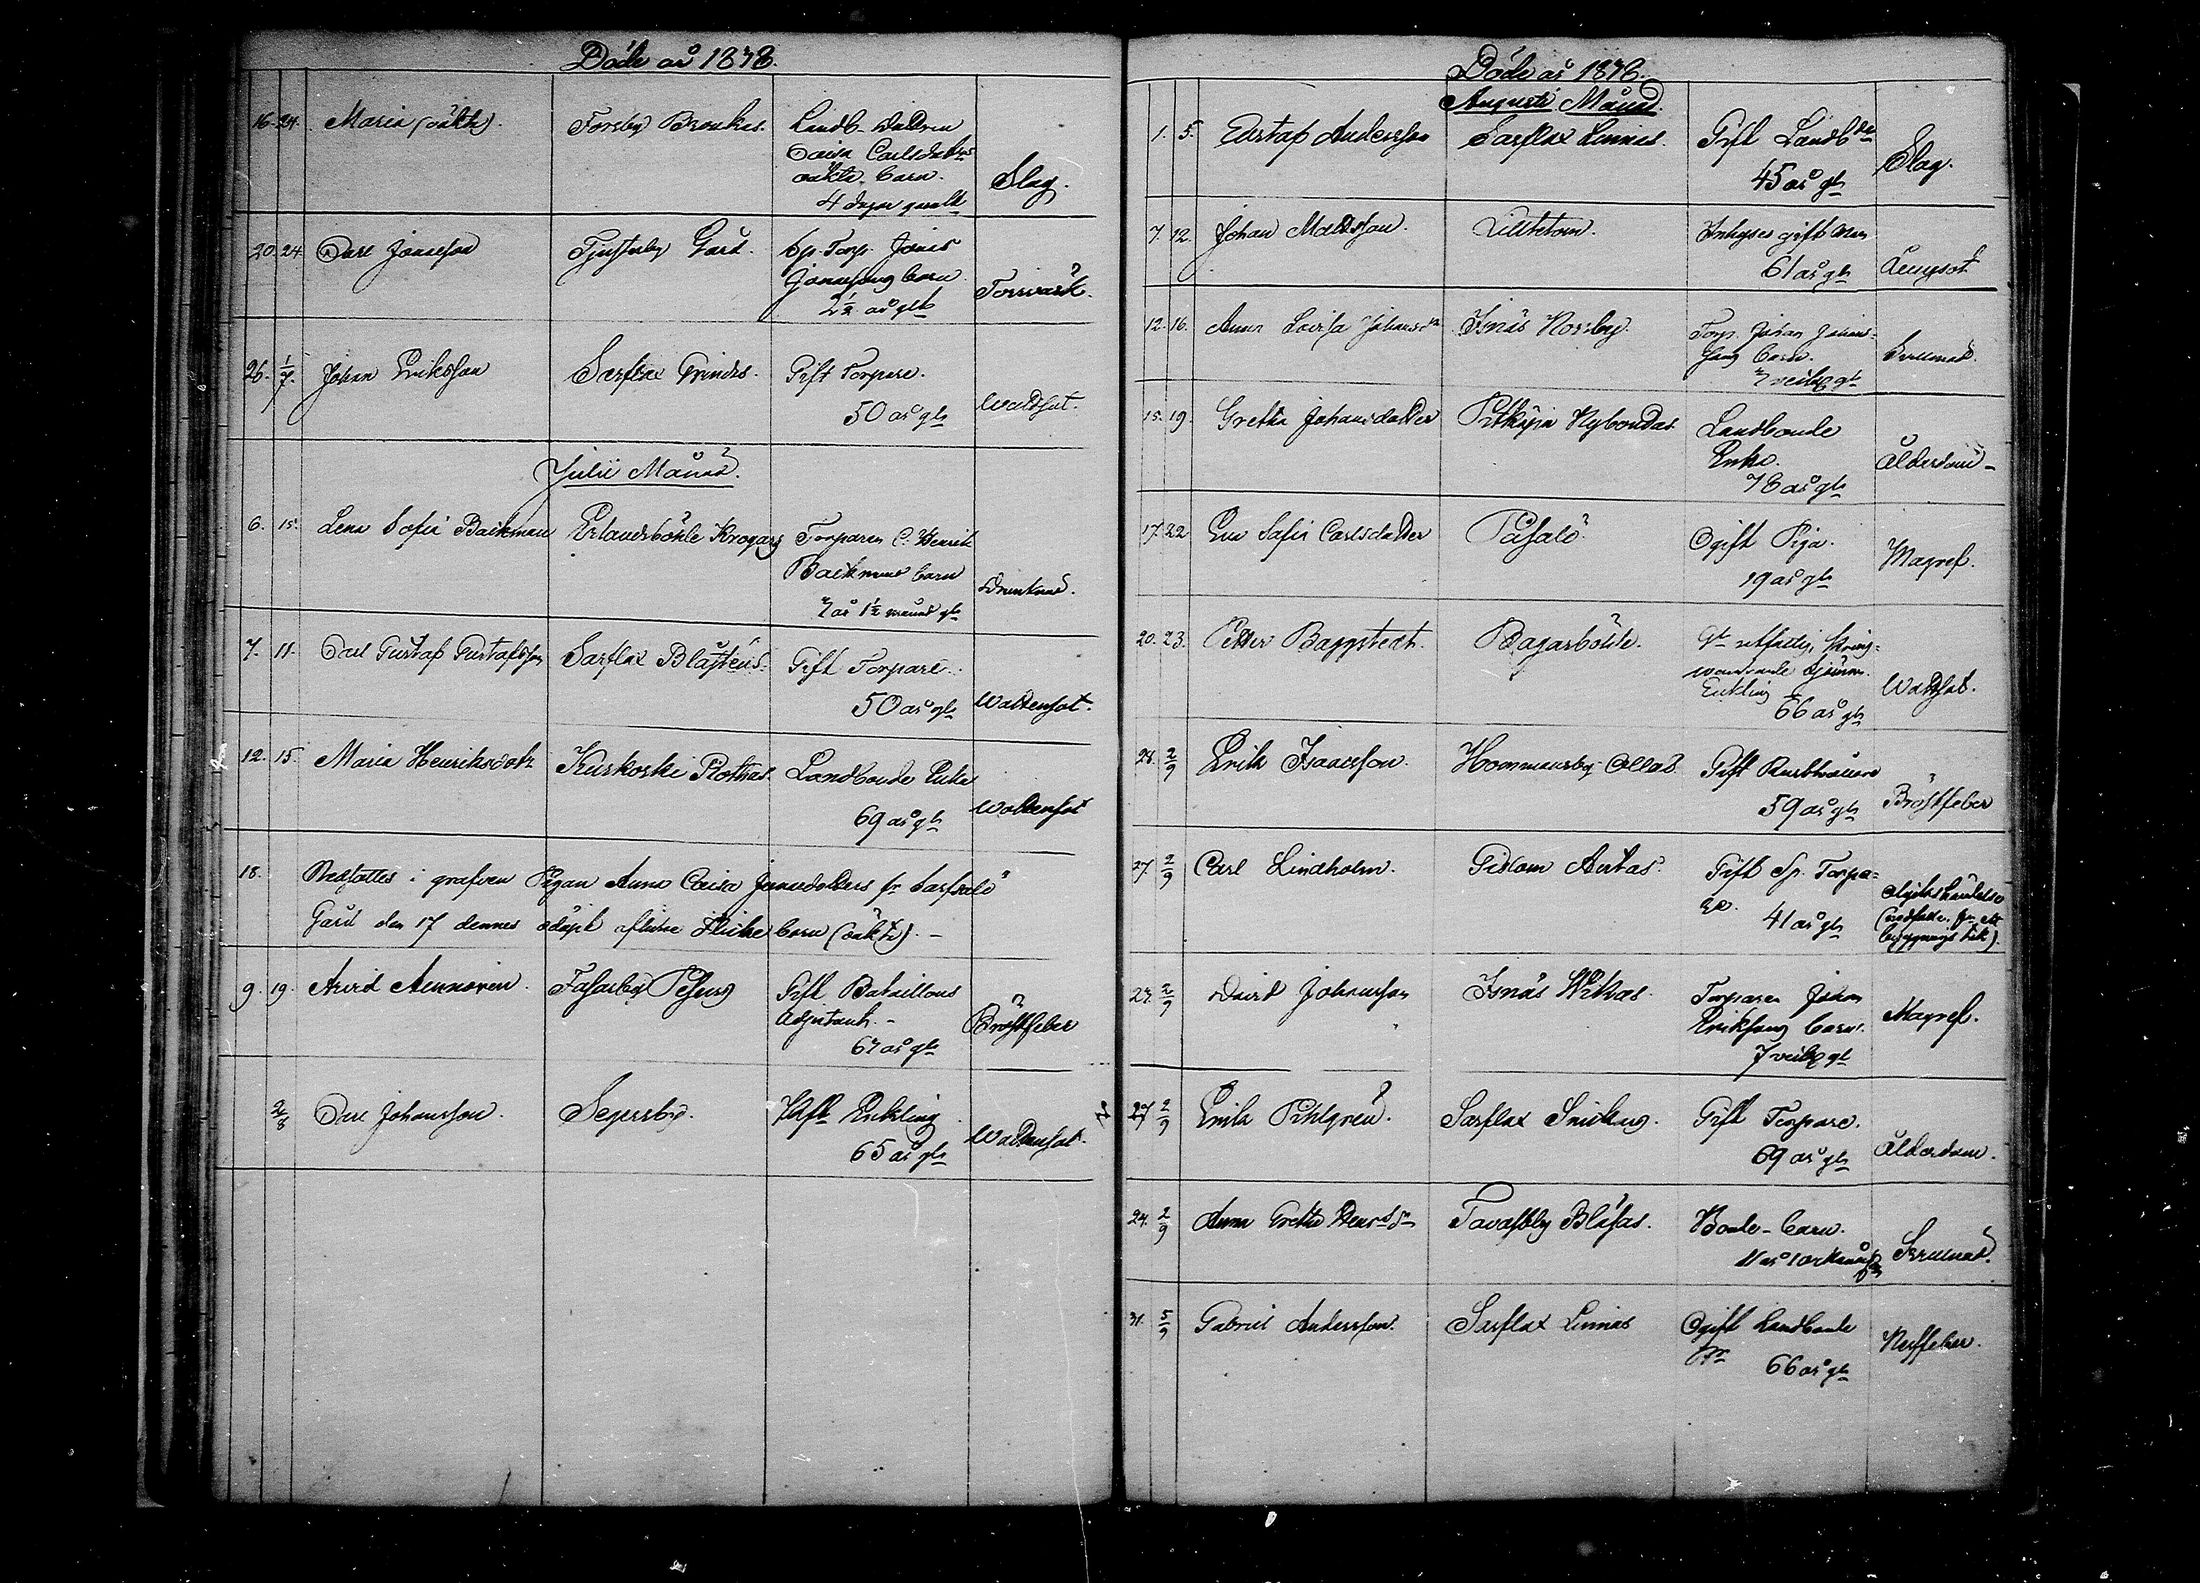 Döde år 1878.
16. 24. Maria (oäkta). Forsby Broukas. Landb. Dottren
Caisa Carlsdotters
oäkta barn.
4 dagar gamalt Slag.
20. 24. Carl Jonasson Tjusterby Gård. Sp. Torp. Jonas
Jonassons barn
2½ år glt Torrvärk.
26. 1/7. Johan Eriksson Sarflax Grindas. Gift Torpare.
50 år gl Wattsot.
Julii Månad.
6. 15. Lena Sofia Backman Erlandsböhle Krogars Torparen C. Henrik
Backmans barn
7 år 1½ månad gl Drunknad.
7. 11. Carl Gustaf Gustafsson Sarflax Blåstens. Gift Torpare.
50 år gl Wattensot.
12. 15. Maria Henriksdotr Kuskoski Rothas Landbonde Enka
69 år gl Wattensot
18. Nedsattes i grafven Pigan Anna Caisa Jonasdotters fr. Sarfsalö
Gård den 17 dennes odöpt aflidne flicko barn (oäkta). –
9. 19. Arvid Aminoren. Fasarby Pehrs Gift Bataillons
Adjutant. –
67 år gl Bröstfeber
2/8 Carl Johansson. Segersby. Enkling
65 år gl Wattensot.
Döde år 1878.
Augusti Månad.
1. 5. Gustaf Andersson Sarflax Linnas. Gift Landbde
45 år gl Slag.
7. 12. Johan Mattsson. Lilltötom. Inhyses gift man
61 år gl Lungsot
12. 16. Anna Lovisa Johansdr Isnäs Norrby. Torp. Johan Johans-
sons barn.
7 veckor gl
15. 19. Gretha Johansdotter Pitkäpä Nybondas Landbonde
Enka.
78 år gl Ålderdom –
17. 22 Eva Sofia Carlsdotter Påsalö. Ogift Piga.
19 år gl Magref.
20. 23. Petter Baggstedt. Bagarböhle. utfattig, kring-
wandrande
Enkling
66 år gl Wattsot.
28. 2/9 Erik Isacsson. Hommansby Ollas Gift Rusthållare
59 år gl Bröstfeber
27. 2/9 Carl Lindholm. Gislom Antas. Gift Sp. Torpa-
re.
41 år gl Olyckshändelse
(nedfalln. fr. ett
byggnings tak).
23. 2/9 David Johansson Isnäs Wikas. Torparen Johan
Erikssons barn.
7 veckor gl Magref.
27 2/9 Erik Pihlgren. Sarflax Snickars. Gift Torpare.
69 år gl Ålderdom.
24. 2/9 Anna Gretha Tavastby Blåsas. Bonde-barn.
11 år
31. 5/9 Gabriel Andersson. Sarflax Linnas Ogift Landbonde
66 år gl Nerffeber.